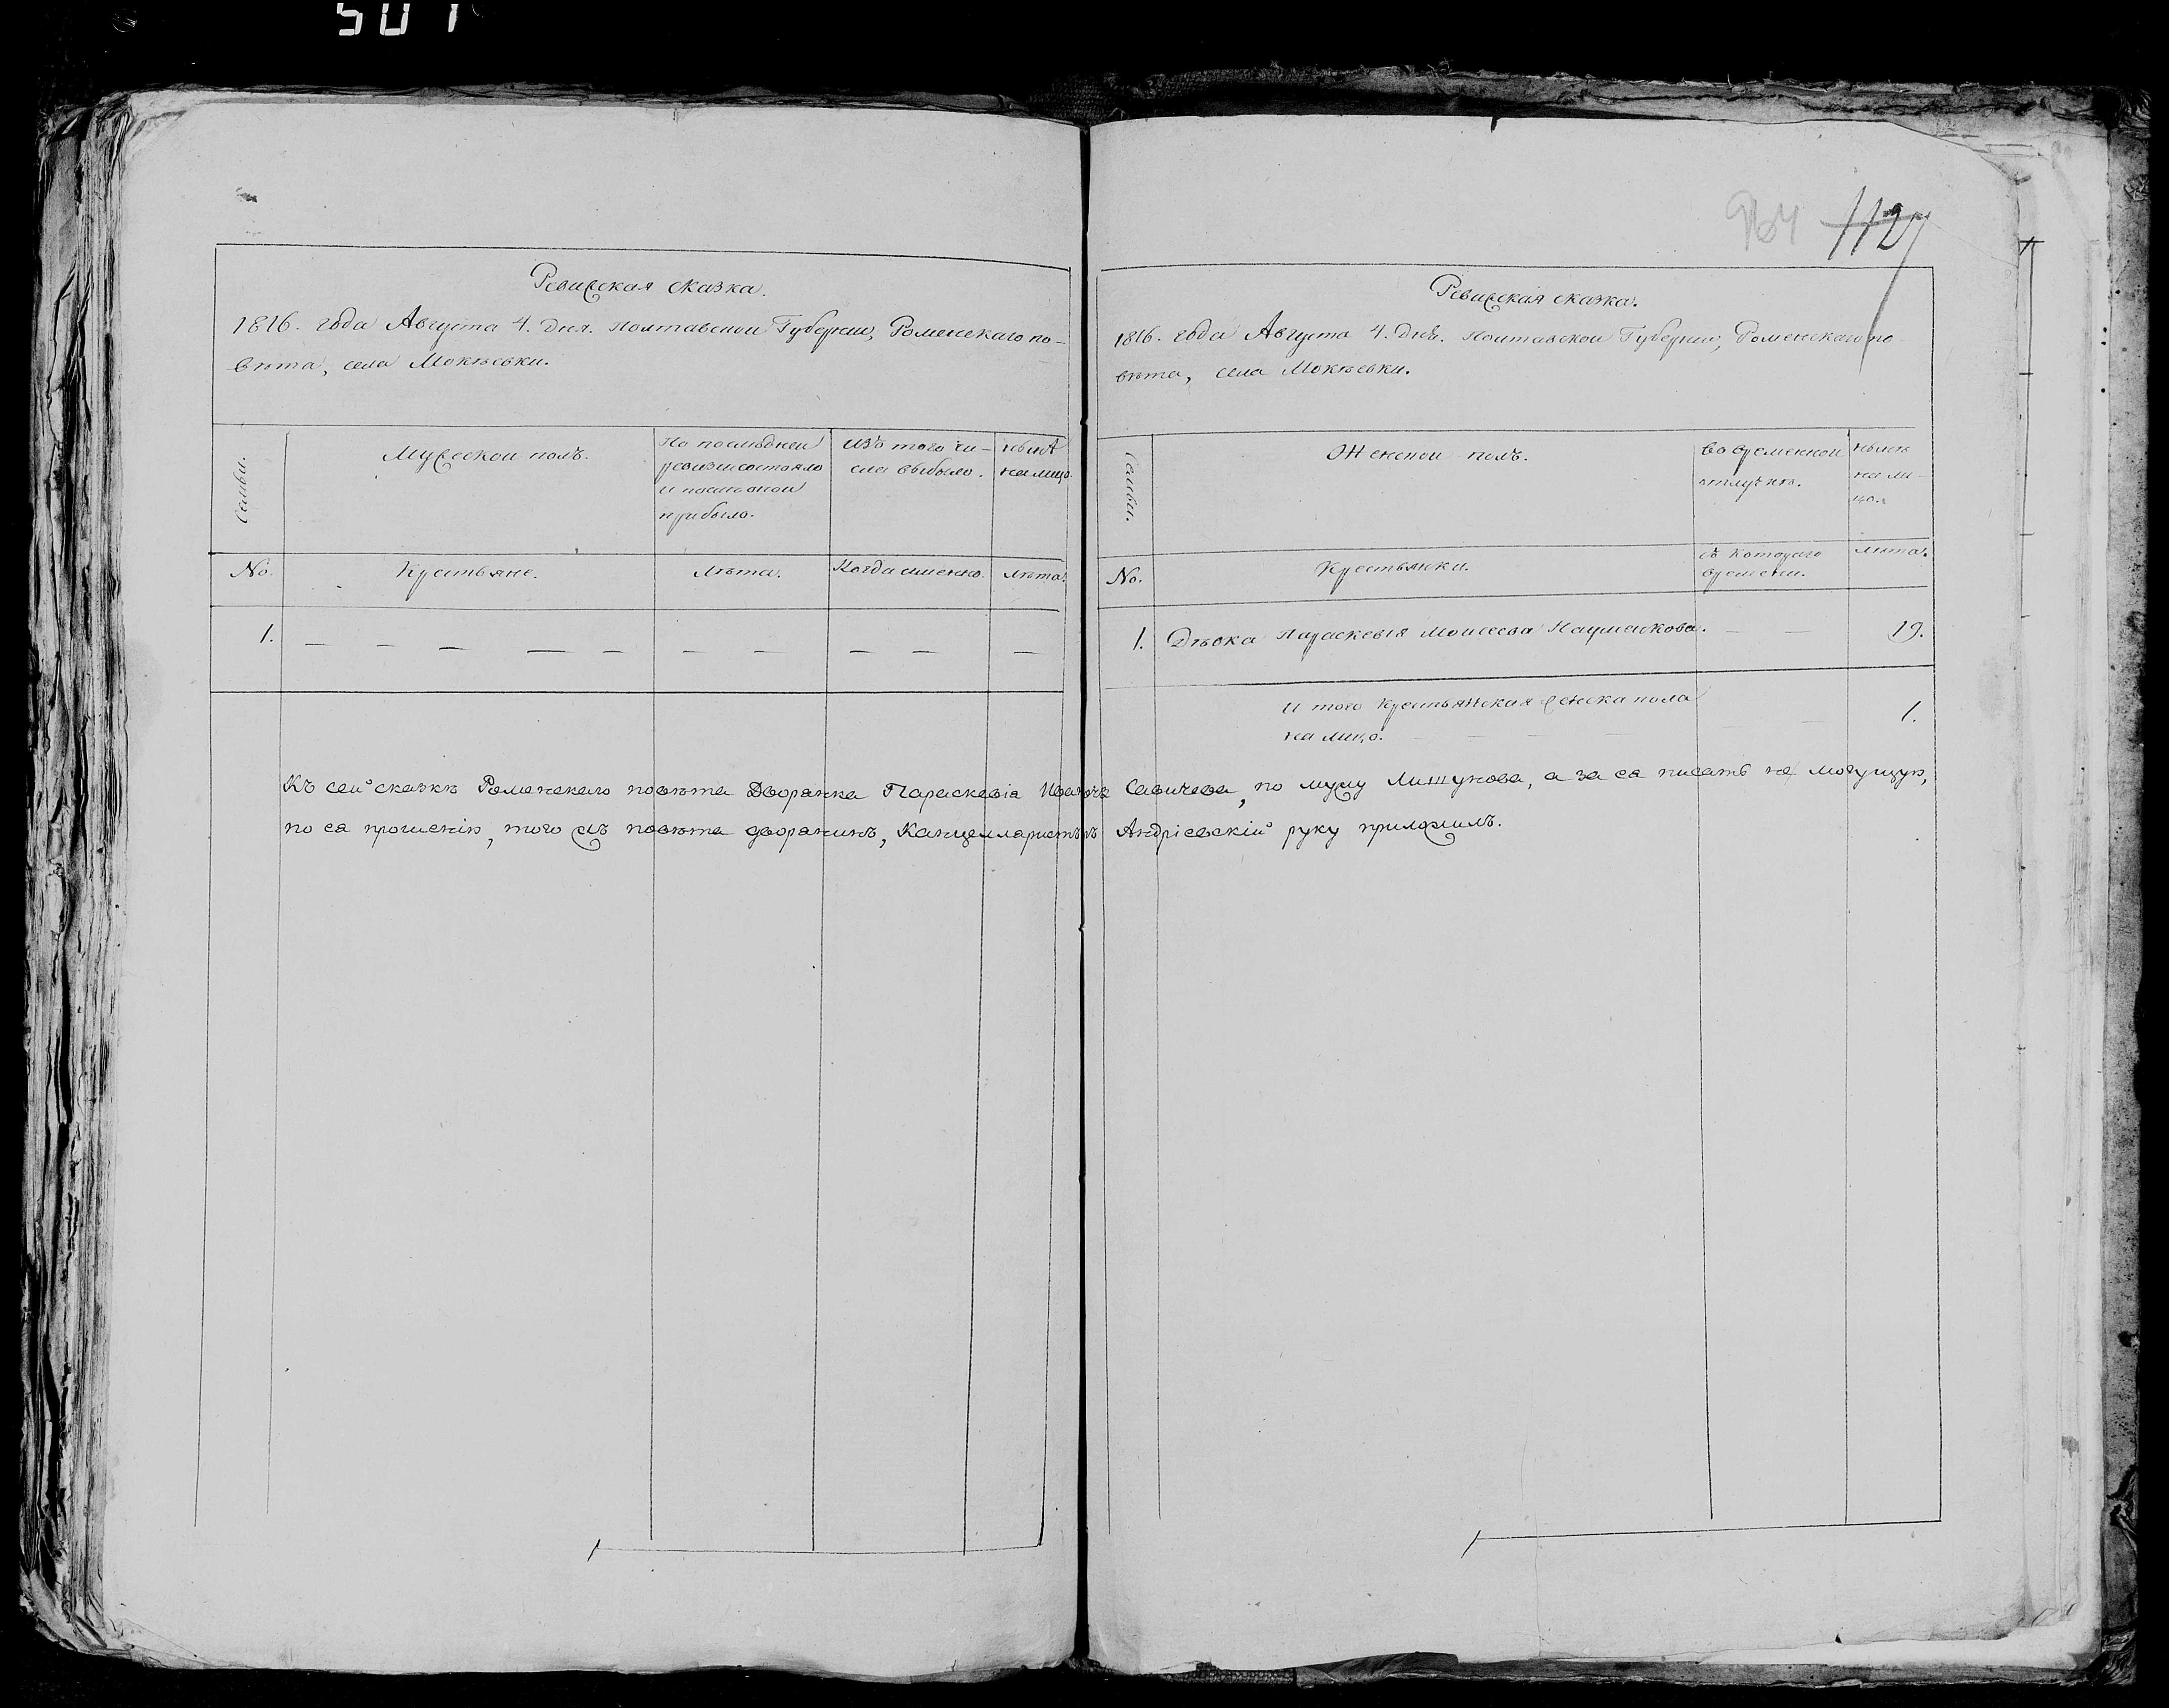 501
964 1127
Ревижская сказка.
1816. года Августа 4. дня. Полтавской Губернiи, Роменскаго по-
вѣта, села Мокѣевки.
Семьи.
Мужескои полъ.
По последнеи
ревизiи состояло
и после оной
прибыло.
Изъ того чи-
сла выбыло.
нынѣ
на лицо.
No.
Крестьяне.
Лѣта.
Когда именно.
лѣта.
1. — — — — — — — — — —
Ревижская сказка.
1816. года Августа 4. дня. Полтавской Губернiи, Роменскаго по-
вѣта, села Мокѣевки.
Семьи.
Женской полъ.
Во временной
отлучкѣ.
нынѣ
на ли-
цо.
No.
Крестьянки.
съ котораго
времени.
лѣта.
1. Дѣвка Параскевiя Моисеева Науменкова. — — 19.
И того крестьянская женска пола — — 1.
на лицо.
Къ сей сказкѣ Роменскаго повѣта Дворянка Параскевiа Савичева, по мужу Лишунова, а за ея писать не могущую,
по еа прошенiю, того жъ повѣта дворянинъ, Канцеляристъ Андрiевскiй руку приложилъ.